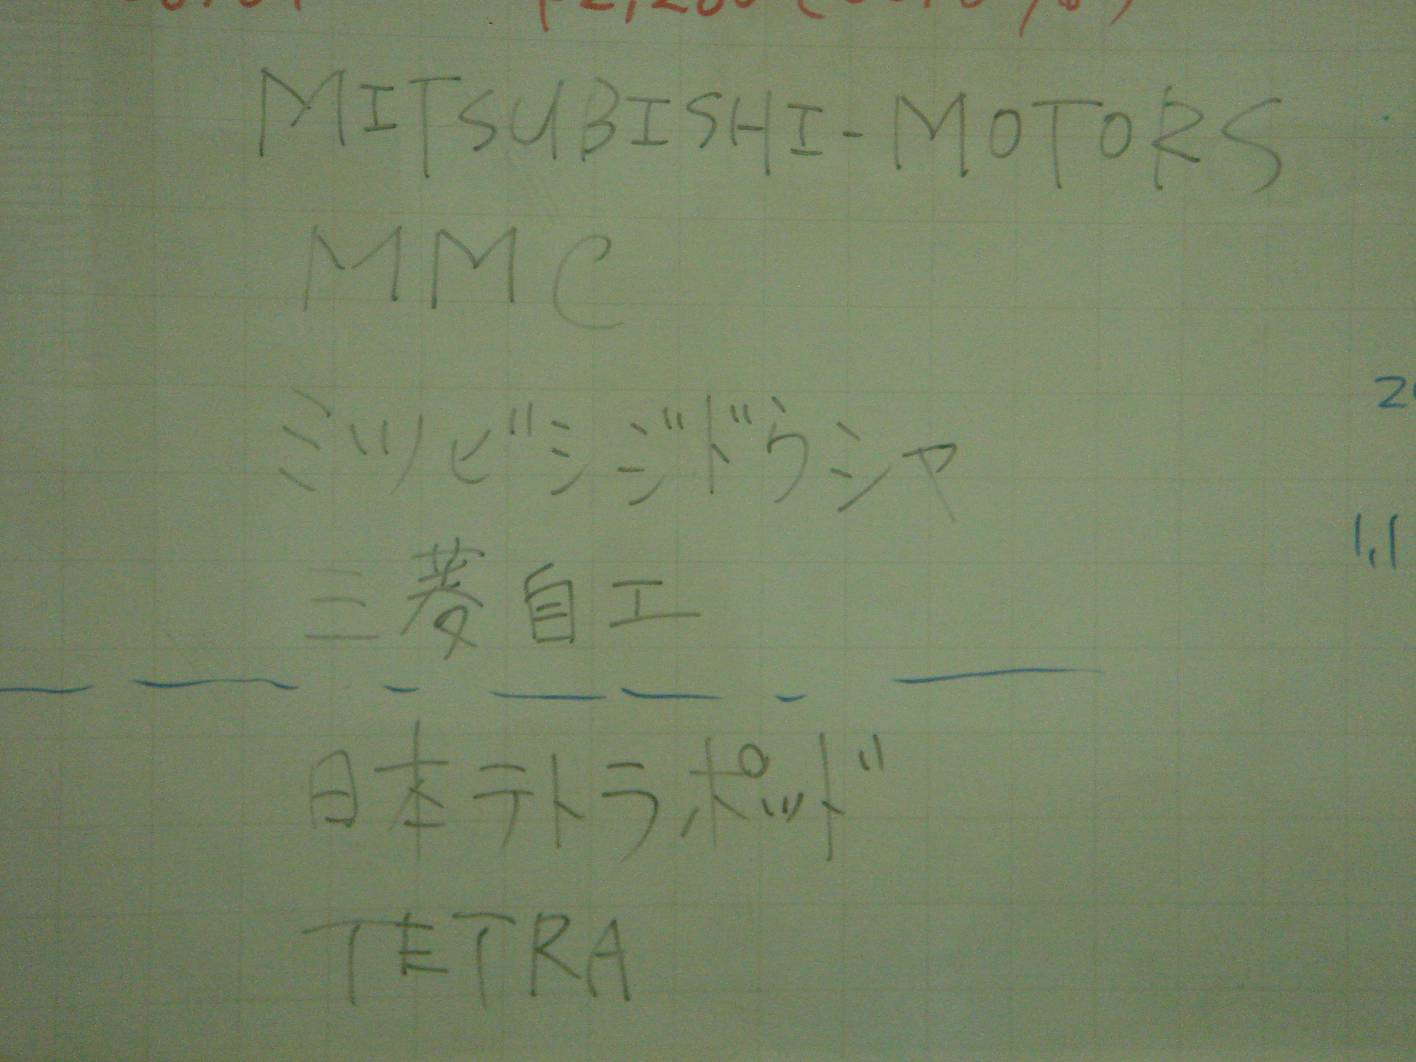 MITSUBISHI-MOTORS
MMC
ミツビシジドウシャ
三菱自工
日本テトラポッド
TETRA